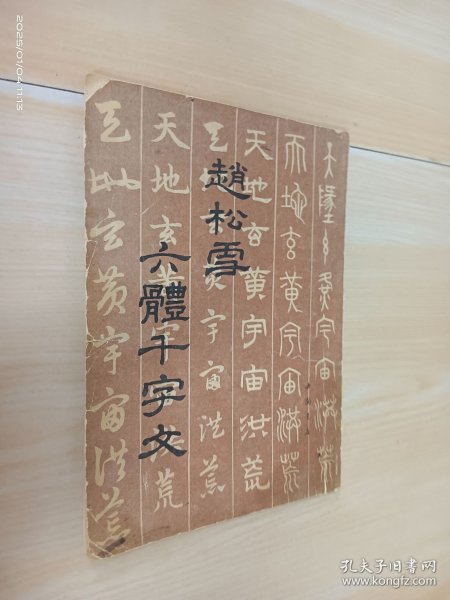 趙松雪
六體千字文
天地玄黃宇宙洪荒
天地玄黃宇宙洪荒
天地玄黃宇宙洪荒
天地玄黃宇宙洪荒
天地玄黃宇宙洪荒
天地玄黃宇宙洪荒
2025/01/04 11:13
孔夫子旧书网
www.kongfz.com